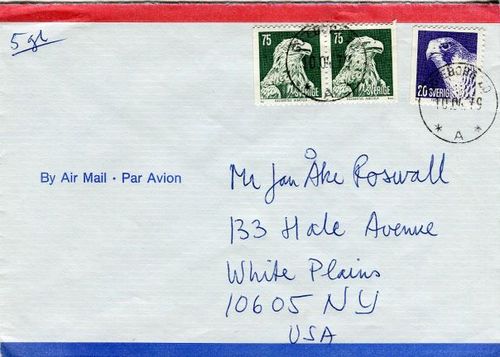 5 gl
75 75
SVERIGE SVERIGE
20 SVERIGE
10.04.79
A
* A *
By Air Mail · Par Avion
Mr Jan Åke Roswall
133 Hale Avenue
White Plains
10605 NY
USA